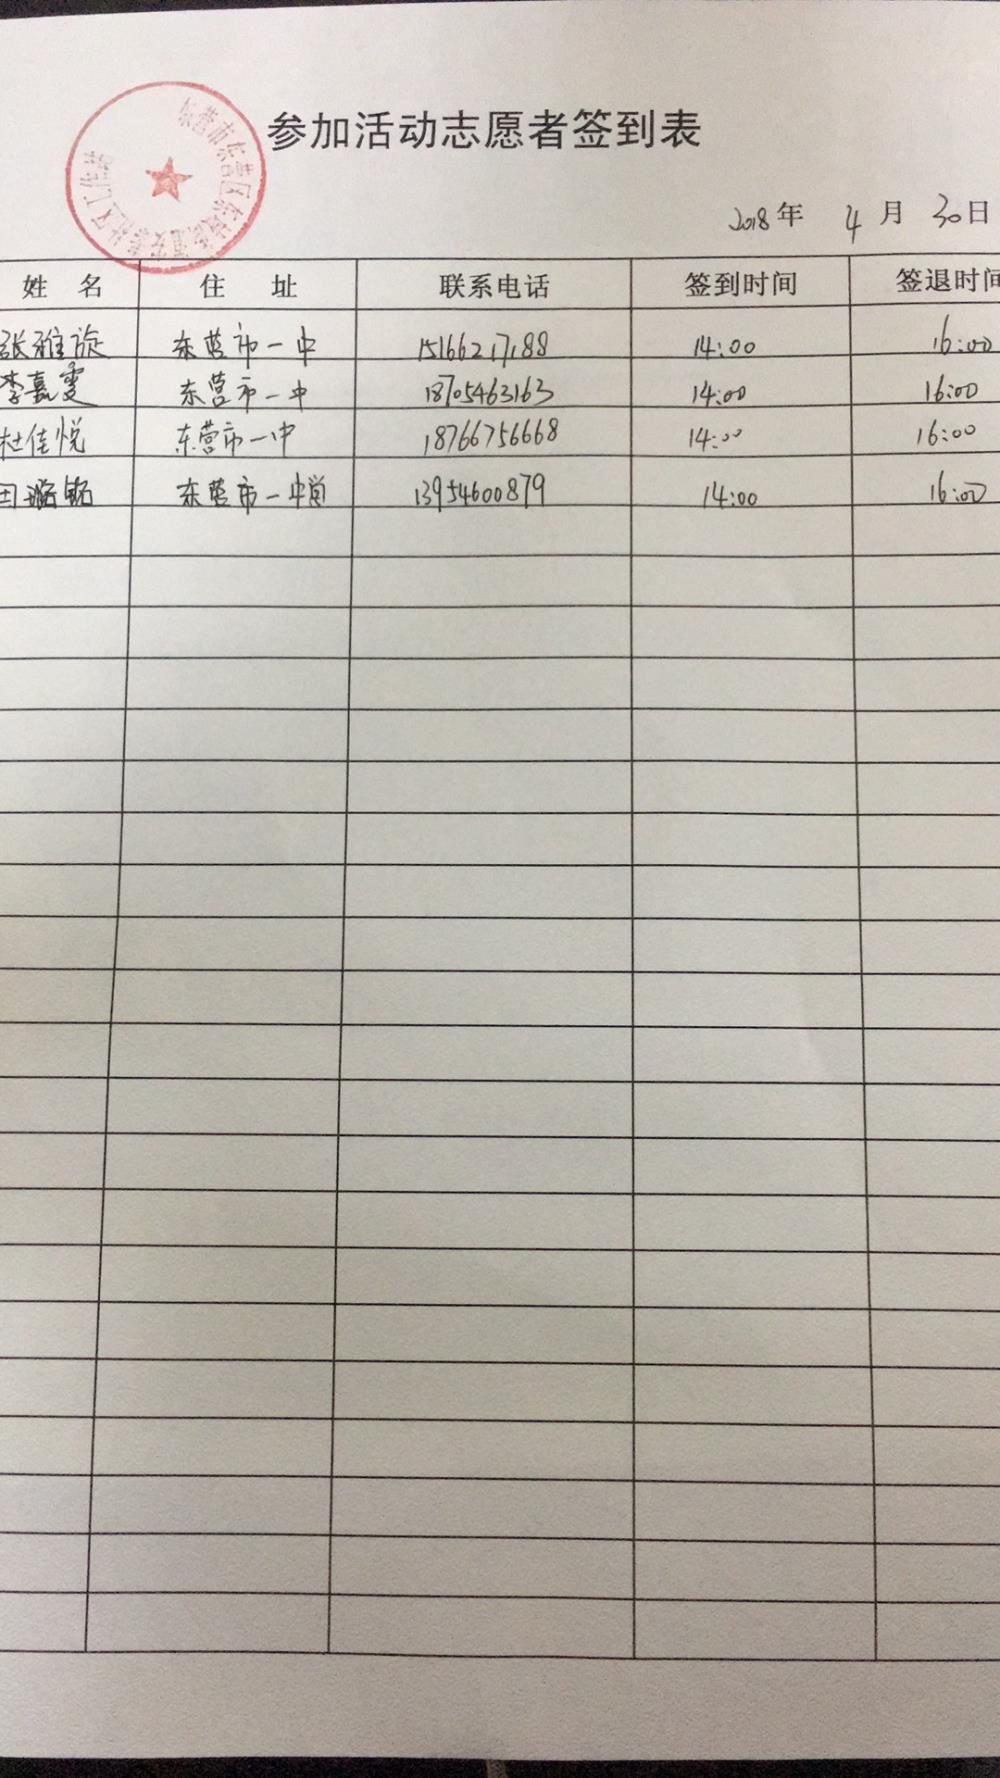 参加活动志愿者签到表
2018年 4月 30日
姓 名 住 址 联系电话 签到时间 签退时间
张雅旋 东营市一中 15166217188 14:00 16:00
李嘉雯 东营市一中 18705463163 14:00 16:00
杜佳悦 东营市一中 18766756668 14:00 16:00
田璐铭 东营市一中 13954600879 14:00 16:00
东营市东营区 社区工作站